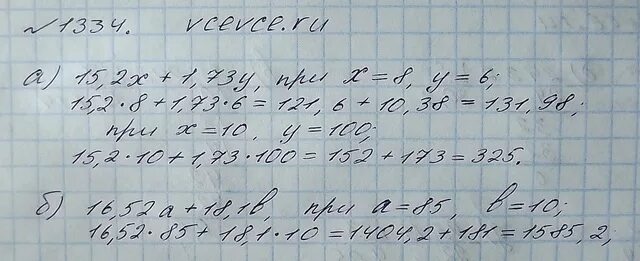 №1334. vcevce.ru
а) 15,2x + 1,73y, при x = 8, y = 6;
15,2·8 + 1,73·6 = 121,6 + 10,38 = 131,98;
при x = 10, y = 100;
15,2·10 + 1,73·100 = 152 + 173 = 325.
б) 16,52a + 18,1b, при a = 85, b = 10;
16,52·85 + 18,1·10 = 1404,2 + 181 = 1585,2;